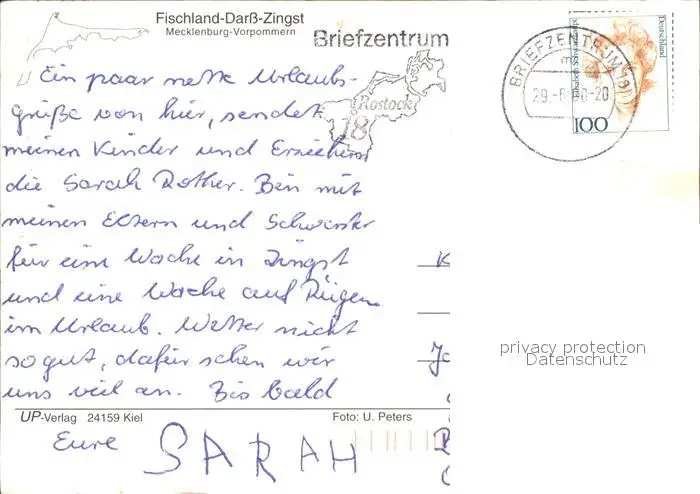 Fischland-Darß-Zingst
Mecklenburg-Vorpommern
Briefzentrum
Rostock
18
BRIEFZENTRUM 18
29.-6.00-20
Deutschland
100
Ein paar nette Urlaubs-
grüße von hier, sendet
meinen Kinder und Erziehern
die Sarah Rother. Bin mit
meinen Eltern und Schwester
für eine Woche in Zingst
und eine Woche auf Rügen
im Urlaub. Wetter nicht
so gut, dafür sehen wir
uns viel an. Bis bald
UP-Verlag 24159 Kiel
Foto: U. Peters
Eure SARAH
privacy protection
Datenschutz